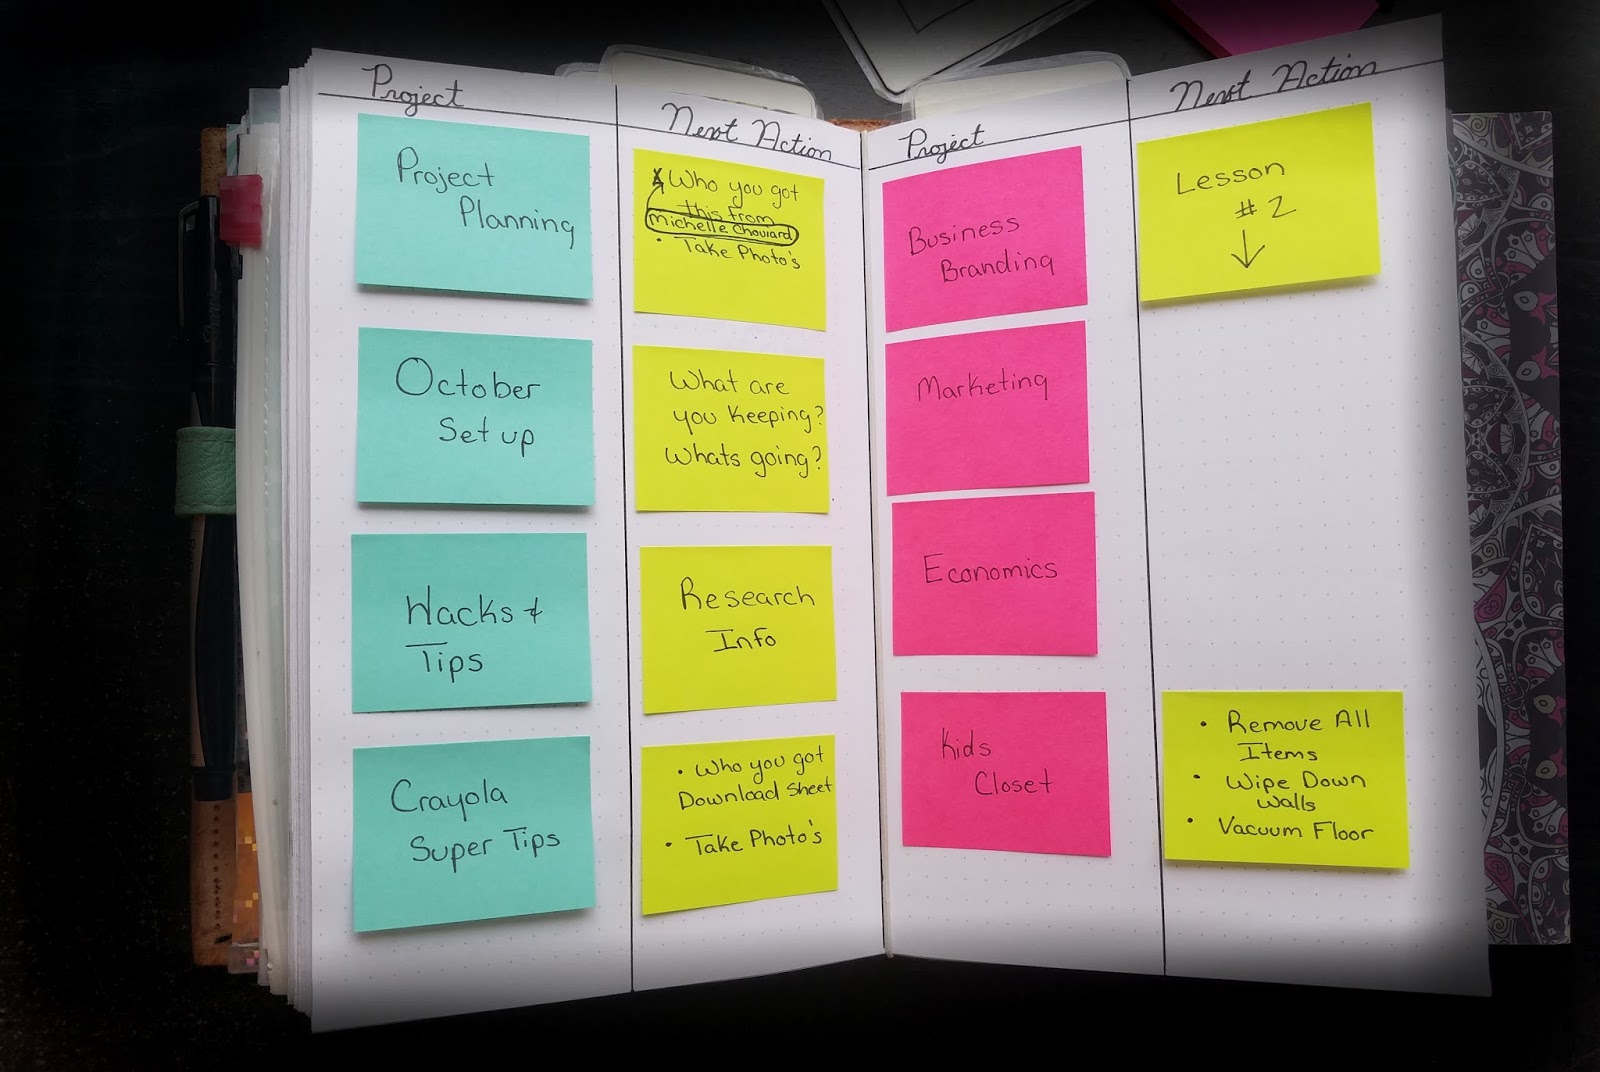 Project
Next Action
Project
Planning
Who you got
this from
Michelle Chouiard
• Take Photo's
October
Set up
What are
you Keeping?
Whats going?
Hacks +
Tips
Research
Info
Crayola
Super Tips
• Who you got
Download Sheet
• Take Photo's
Project
Next Action
Business
Branding
Lesson
#2
Marketing
Economics
Kids
Closet
• Remove All
Items
• Wipe Down
Walls
• Vacuum Floor